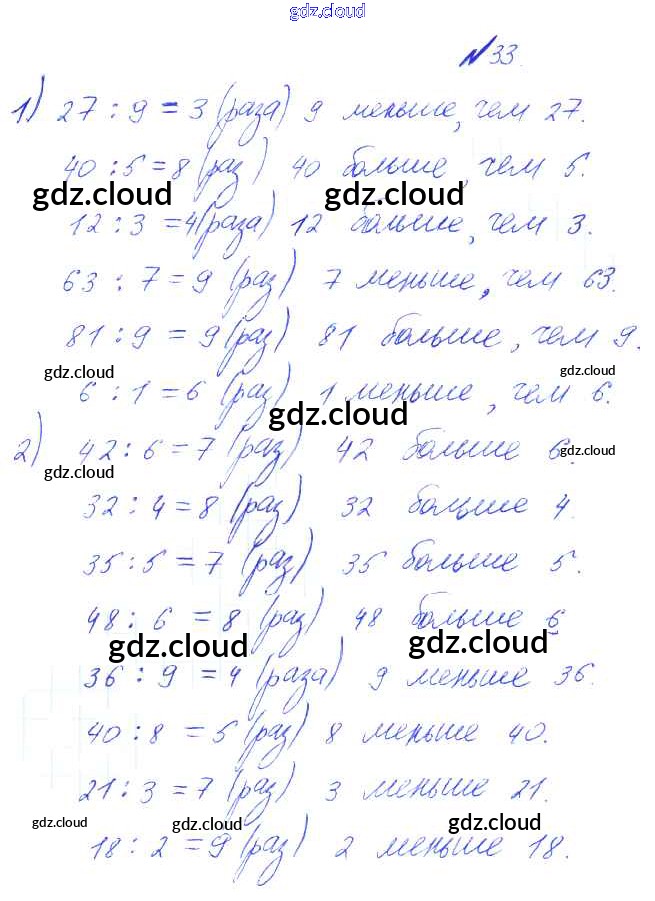 gdz.cloud
№ 33.
1) 27 : 9 = 3 (раза) 9 меньше, чем 27.
40 : 5 = 8 (раз) 40 больше, чем 5.
gdz.cloud gdz.cloud
12 : 3 = 4 (раза) 12 больше, чем 3.
63 : 7 = 9 (раз) 7 меньше, чем 63.
81 : 9 = 9 (раз) 81 больше, чем 9.
gdz.cloud gdz.cloud
6 : 1 = 6 (раз) 1 меньше, чем 6.
gdz.cloud
2) 42 : 6 = 7 (раз) 42 больше 6.
gdz.cloud gdz.cloud
32 : 4 = 8 (раз) 32 больше 4.
35 : 5 = 7 (раз) 35 больше 5.
48 : 6 = 8 (раз) 48 больше 6
gdz.cloud gdz.cloud
36 : 9 = 4 (раза) 9 меньше 36.
40 : 8 = 5 (раз) 8 меньше 40.
21 : 3 = 7 (раз) 3 меньше 21.
gdz.cloud gdz.cloud gdz.cloud
18 : 2 = 9 (раз) 2 меньше 18.